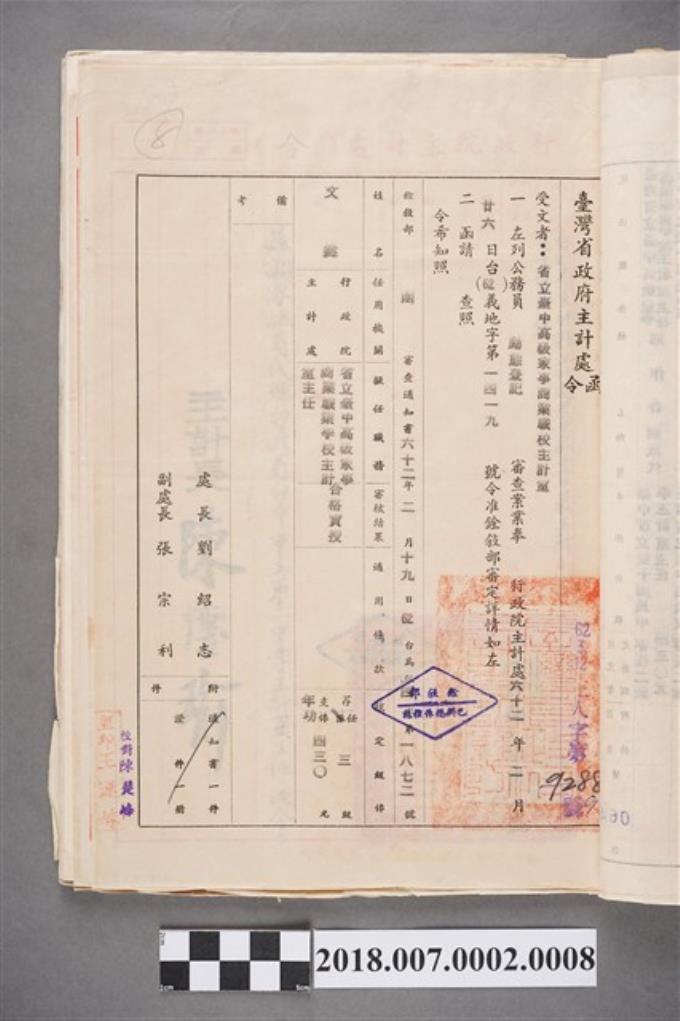 臺灣省政府主計處函令
受文者：省立臺中高級家事商業職校主計室
一 左列公務員 動態登記 審查案業奉 行政院主計處六十二年二月
廿六日台(62)義地字第一四一九 號令准銓敘部審定詳情如左
二 函請 查照
令希知照
銓敘部 審查通知書六十二年二月十九日62台為 第一八七二號
姓名 任用機關 擬任職務 審核結果 適用條款 核定級俸
文
行政院主計處
省立臺中高級家事商業職業學校主計室主任
合格實授
三級
年功 四三〇元
備考
處長 劉紹志
副處長 張宗利
附件 通知書一件
證件一冊
校對陳楚峰
62
人字第
9288
號
銓敘部
8
2018.007.0002.0008
1cm
5cm